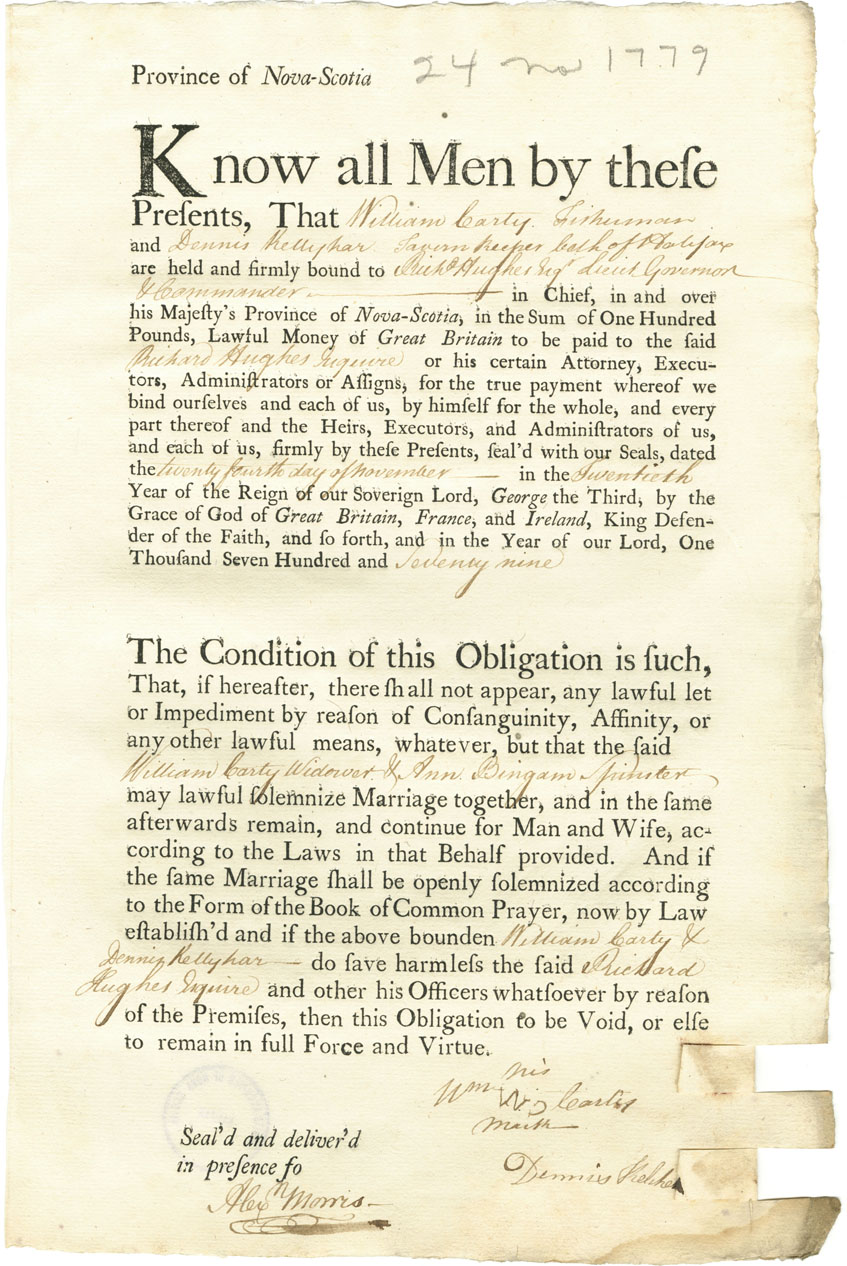 Province of Nova-Scotia 24 No 1779
Know all Men by theſe
Preſents, That William Carty Fisherman
and Dennis Kellyhar Tavern keeper both of Halifax
are held and firmly bound to Richd Hughes Esqr Lieut Governor
& Commander in Chief, in and over
his Majeſty's Province of Nova-Scotia, in the Sum of One Hundred
Pounds, Lawful Money of Great Britain to be paid to the ſaid
Richard Hughes Esquire or his certain Attorney, Execu-
tors, Adminiſtrators or Aſſigns, for the true payment whereof we
bind ourſelves and each of us, by himſelf for the whole, and every
part thereof and the Heirs, Executors, and Adminiſtrators of us,
and each of us, firmly by theſe Preſents, ſeal'd with our Seals, dated
the twenty fourth day of November in the Twentieth
Year of the Reign of our Soverign Lord, George the Third, by the
Grace of God of Great Britain, France, and Ireland, King Defen-
der of the Faith, and ſo forth, and in the Year of our Lord, One
Thouſand Seven Hundred and Seventy nine
The Condition of this Obligation is ſuch,
That, if hereafter, there ſhall not appear, any lawful let
or Impediment by reaſon of Conſanguinity, Affinity, or
any other lawful means, whatever, but that the ſaid
William Carty Widower & Ann Bingam Spinster
may lawful ſolemnize Marriage together, and in the ſame
afterwards remain, and continue for Man and Wife, ac-
cording to the Laws in that Behalf provided. And if
the ſame Marriage ſhall be openly ſolemnized according
to the Form of the Book of Common Prayer, now by Law
eſtabliſh'd and if the above bounden William Carty &
Dennis Kellyhar do ſave harmleſs the ſaid Richard
Hughes Esquire and other his Officers whatſoever by reaſon
of the Premiſes, then this Obligation to be Void, or elſe
to remain in full Force and Virtue.
his
Wm Carty
mark
Seal'd and deliver'd
in preſence fo
Dennis
Alexr Morris